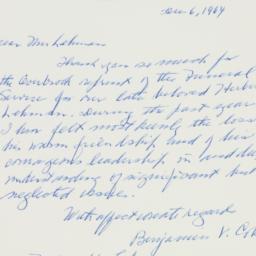 Dec 6, 1964
ear Mrs Lehman
Thank you so much for
the reprint of the Funeral
Service for our late beloved Herber
Lehman. During the past year
I have felt most keenly the loss
his warm friendship and of his
courageous leadership in and
understanding of significant but
neglected issues.
With affectionate regard
Benjamin V. Co